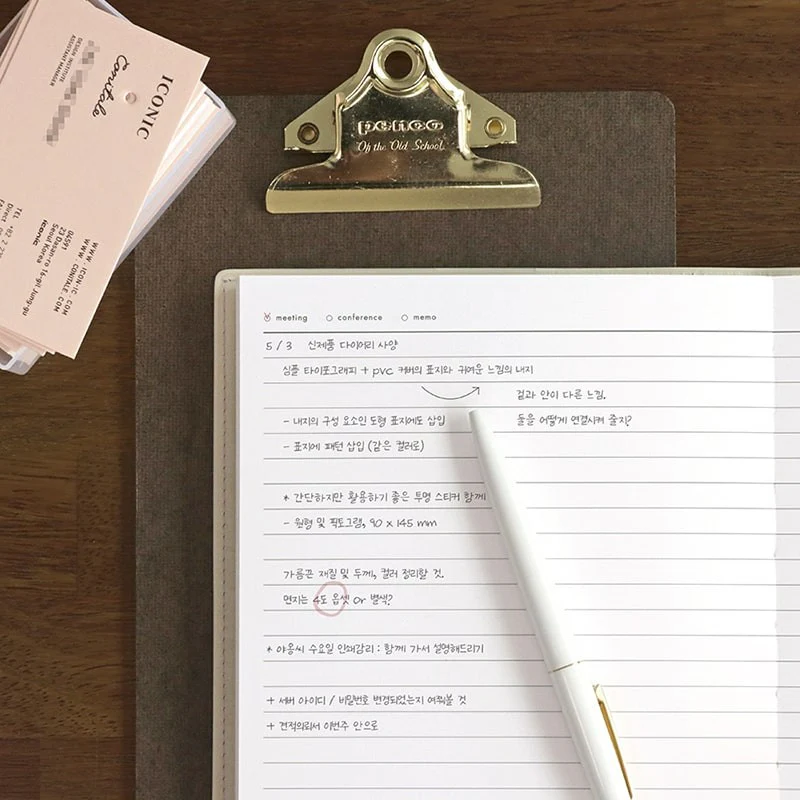 ICONIC
Contale
DESIGN INSTITUTE
ASSISTANT MANAGER
WWW.ICON-IC.COM
WWW.CONTALE.COM
04591
23 Dasan-ro 16-gil Jung-gu
Seoul Korea
iconic
TEL +82 2
Direct
penco
"Of the Old School."
meeting conference memo
5 / 3 신제품 다이어리 사양
심플 타이포그래피 + pvc 커버의 표지와 귀여운 느낌의 내지
겉과 안이 다른 느낌.
- 내지의 구성 요소인 도형 표지에도 삽입
둘을 어떻게 연결시켜 줄지?
- 표지에 패턴 삽입 (같은 컬러로)
* 간단하지만 활용하기 좋은 투명 스티커 함께
- 원형 및 픽토그램, 90 x 145 mm
가름끈 재질 및 두께, 컬러 정리할 것.
면지는 4도 옵셋 or 별색?
* 야옹씨 수요일 인쇄감리 : 함께 가서 설명해드리기
+ 서버 아이디 / 비밀번호 변경되었는지 여쭤볼 것
+ 견적의뢰서 이번주 안으로